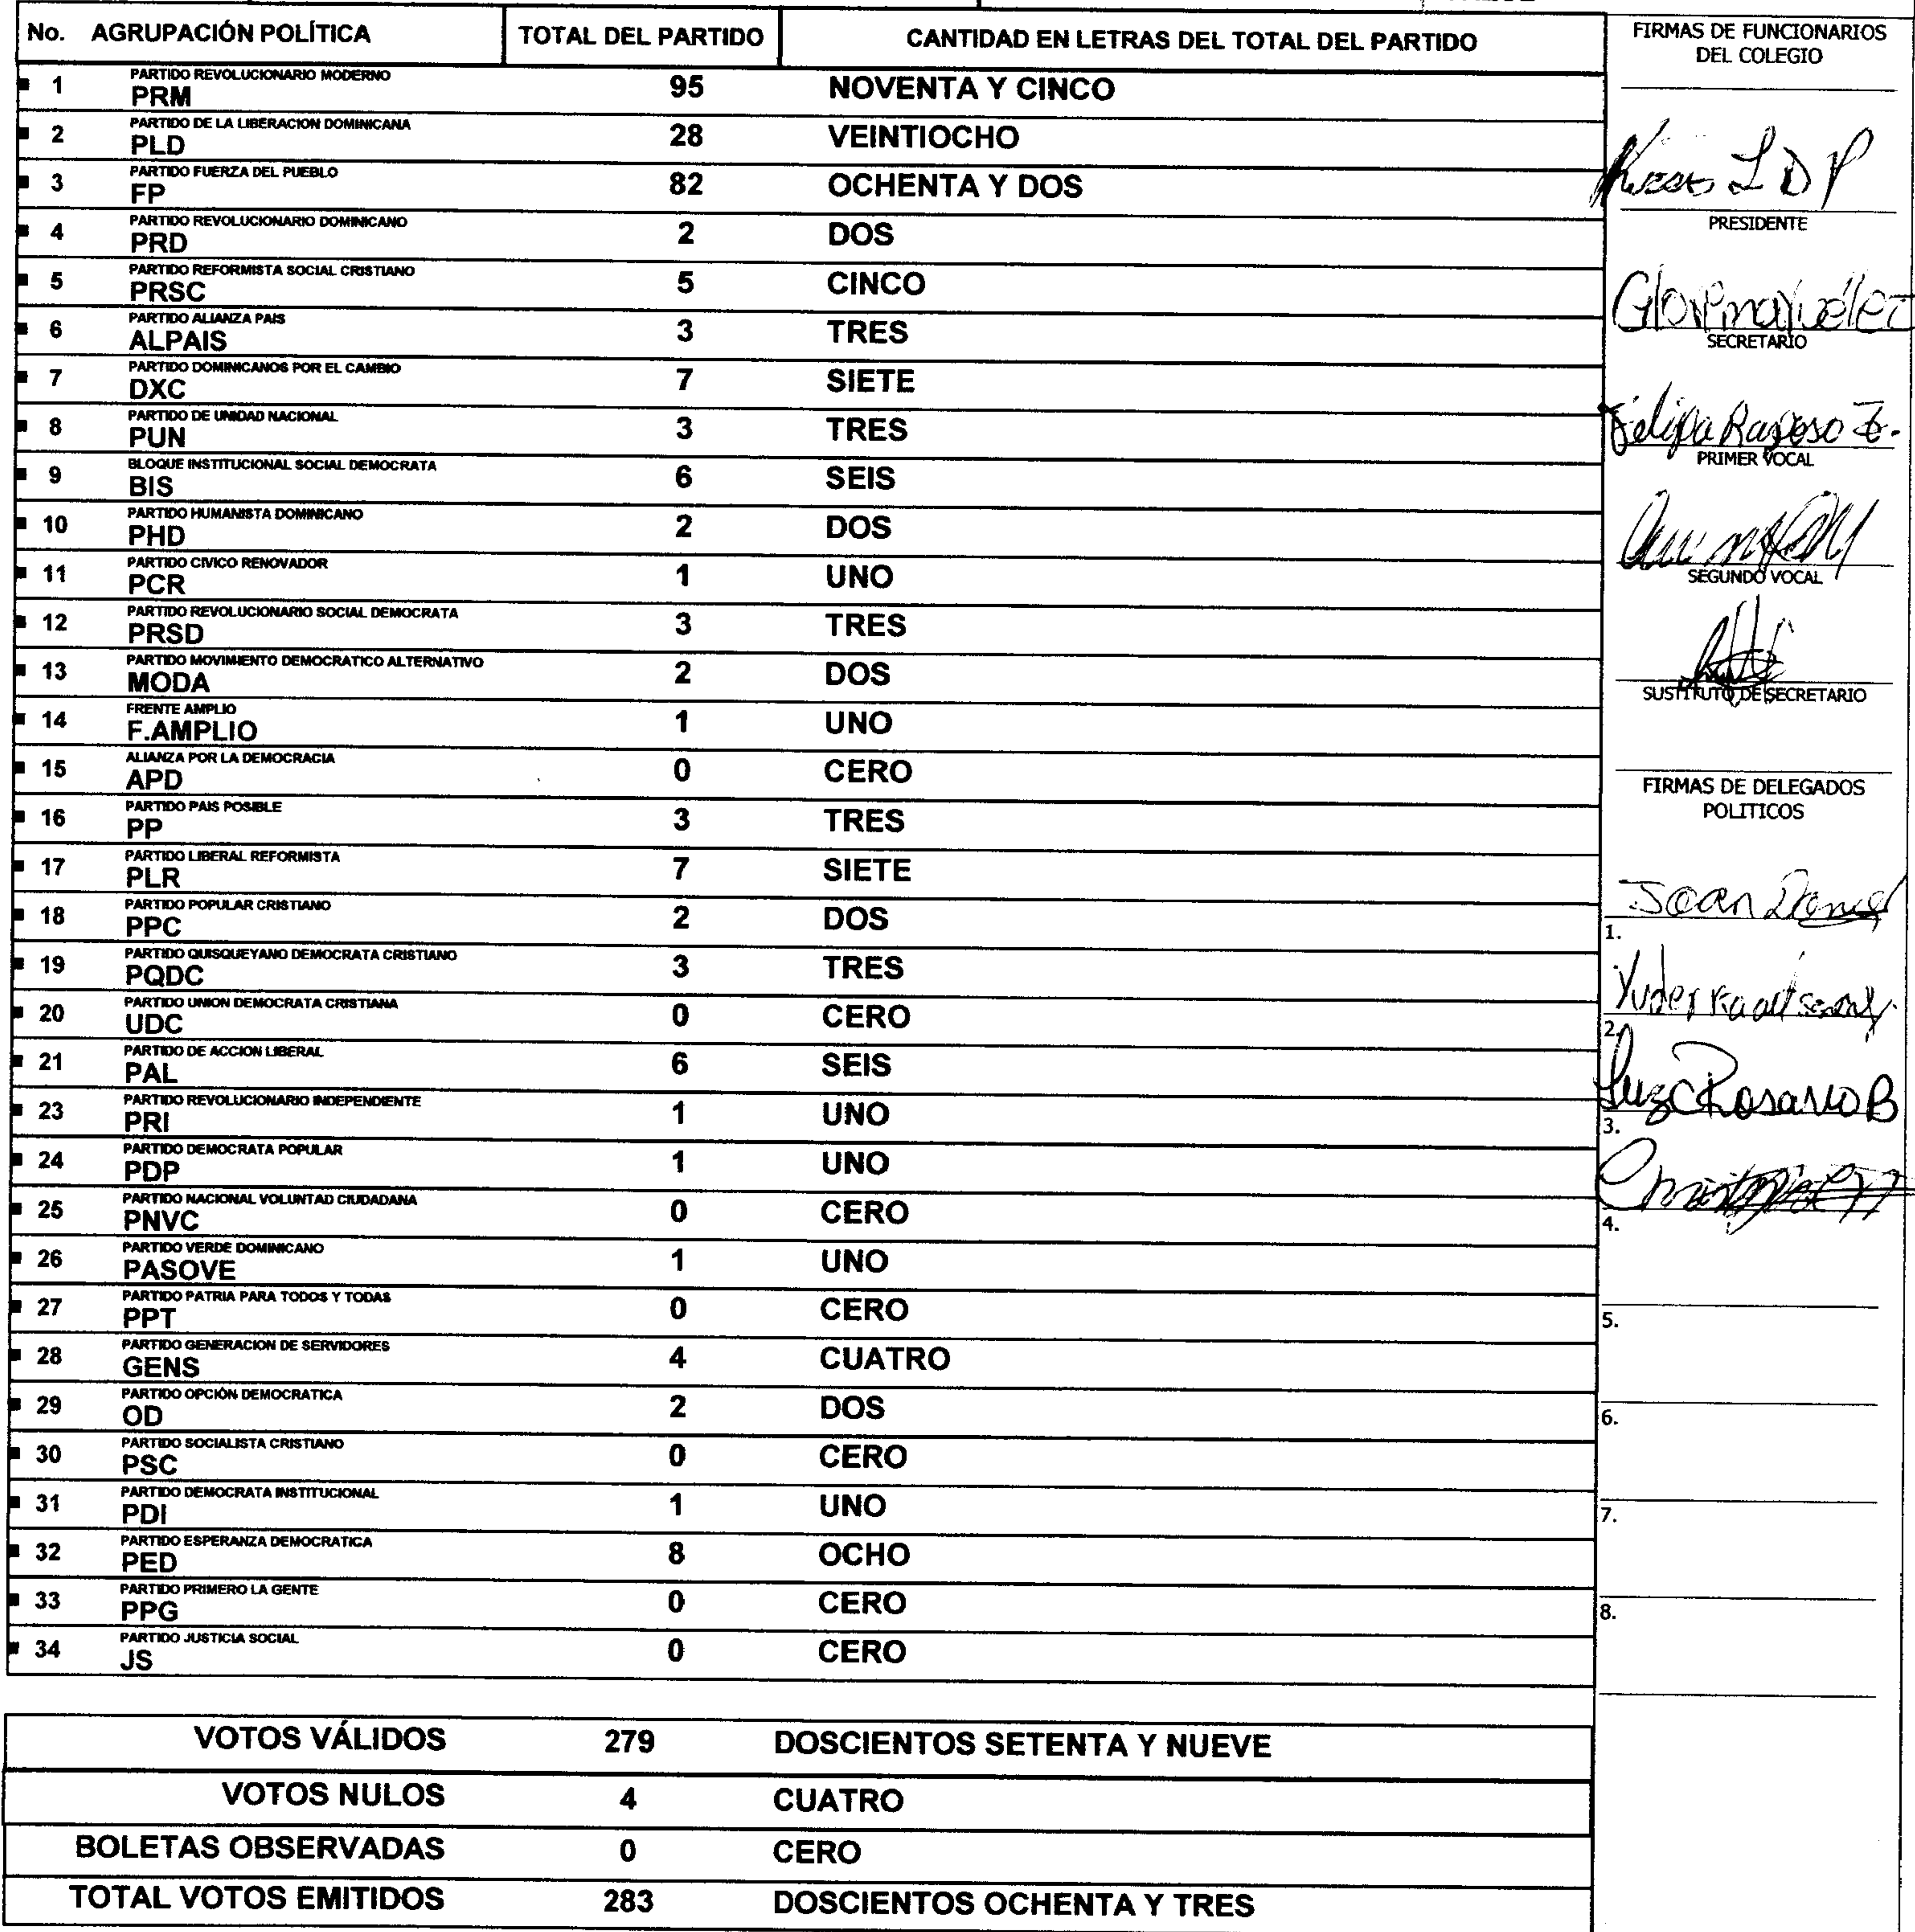 No. AGRUPACIÓN POLÍTICA TOTAL DEL PARTIDO CANTIDAD EN LETRAS DEL TOTAL DEL PARTIDO
PARTIDO REVOLUCIONARIO MODERNO
1 PRM 95 NOVENTA Y CINCO
PARTIDO DE LA LIBERACION DOMINICANA
2 PLD 28 VEINTIOCHO
PARTIDO FUERZA DEL PUEBLO
3 FP 82 OCHENTA Y DOS
PARTIDO REVOLUCIONARIO DOMINICANO
4 PRD 2 DOS
PARTIDO REFORMISTA SOCIAL CRISTIANO
5 PRSC 5 CINCO
PARTIDO ALIANZA PAIS
6 ALPAIS 3 TRES
PARTIDO DOMINICANOS POR EL CAMBIO
7 DXC 7 SIETE
PARTIDO DE UNIDAD NACIONAL
8 PUN 3 TRES
BLOQUE INSTITUCIONAL SOCIAL DEMOCRATA
9 BIS 6 SEIS
PARTIDO HUMANISTA DOMINICANO
10 PHD 2 DOS
PARTIDO CIVICO RENOVADOR
11 PCR 1 UNO
PARTIDO REVOLUCIONARIO SOCIAL DEMOCRATA
12 PRSD 3 TRES
PARTIDO MOVIMIENTO DEMOCRATICO ALTERNATIVO
13 MODA 2 DOS
FRENTE AMPLIO
14 F.AMPLIO 1 UNO
ALIANZA POR LA DEMOCRACIA
15 APD 0 CERO
PARTIDO PAIS POSIBLE
16 PP 3 TRES
PARTIDO LIBERAL REFORMISTA
17 PLR 7 SIETE
PARTIDO POPULAR CRISTIANO
18 PPC 2 DOS
PARTIDO QUISQUEYANO DEMOCRATA CRISTIANO
19 PQDC 3 TRES
PARTIDO UNION DEMOCRATA CRISTIANA
20 UDC 0 CERO
PARTIDO DE ACCION LIBERAL
21 PAL 6 SEIS
PARTIDO REVOLUCIONARIO INDEPENDIENTE
23 PRI 1 UNO
PARTIDO DEMOCRATA POPULAR
24 PDP 1 UNO
PARTIDO NACIONAL VOLUNTAD CIUDADANA
25 PNVC 0 CERO
PARTIDO VERDE DOMINICANO
26 PASOVE 1 UNO
PARTIDO PATRIA PARA TODOS Y TODAS
27 PPT 0 CERO
PARTIDO GENERACION DE SERVIDORES
28 GENS 4 CUATRO
PARTIDO OPCIÓN DEMOCRATICA
29 OD 2 DOS
PARTIDO SOCIALISTA CRISTIANO
30 PSC 0 CERO
PARTIDO DEMOCRATA INSTITUCIONAL
31 PDI 1 UNO
PARTIDO ESPERANZA DEMOCRATICA
32 PED 8 OCHO
PARTIDO PRIMERO LA GENTE
33 PPG 0 CERO
PARTIDO JUSTICIA SOCIAL
34 JS 0 CERO
VOTOS VÁLIDOS 279 DOSCIENTOS SETENTA Y NUEVE
VOTOS NULOS 4 CUATRO
BOLETAS OBSERVADAS 0 CERO
TOTAL VOTOS EMITIDOS 283 DOSCIENTOS OCHENTA Y TRES
FIRMAS DE FUNCIONARIOS
DEL COLEGIO
L D P
PRESIDENTE
SECRETARIO
Felipa Raposo
PRIMER VOCAL
SEGUNDO VOCAL
SUSTITUTO DE SECRETARIO
FIRMAS DE DELEGADOS
POLITICOS
Joan Daniel
1.
2.
Luz C Rosario B
3.
4.
5.
6.
7.
8.